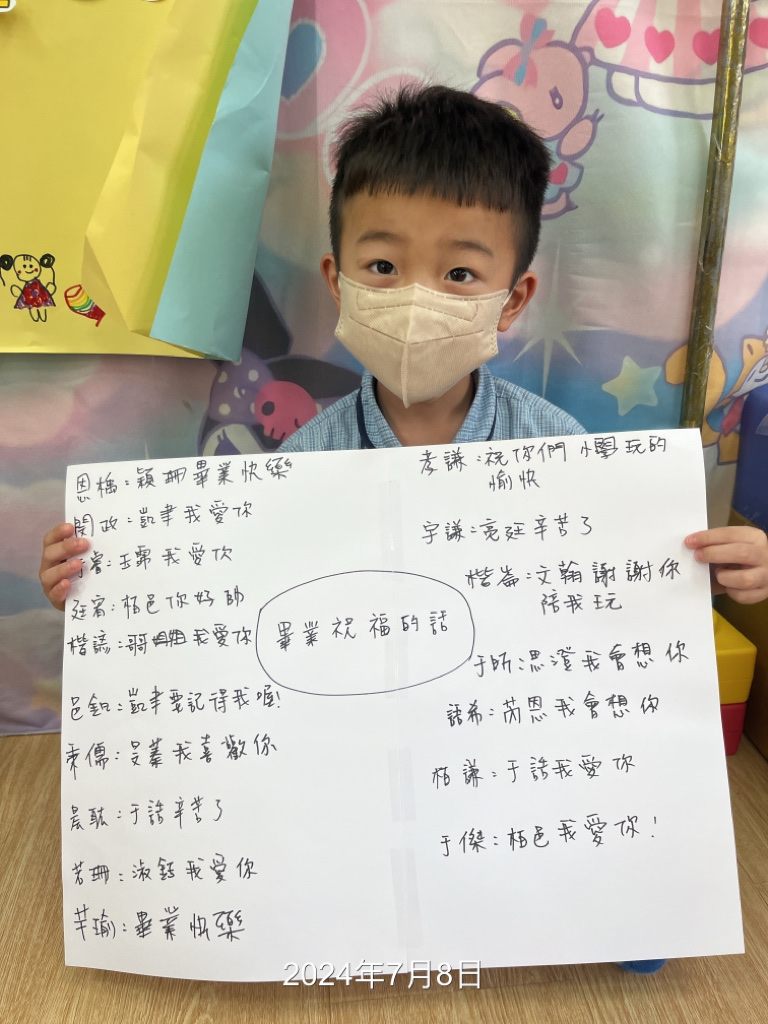 恩橋：穎珊畢業快樂
閔政：凱聿我愛你
睿：玉霈我愛你
廷宥：栢邑你好帥
楷誌：哥姐姐我愛你
邑釦：凱聿要記得我喔！
秉儒：旻蓁我喜歡你
晨耘：于語辛苦了
若珊：淑鈺我愛你
芊瑜：畢業快樂
畢業祝福的話
孝謙：祝你們小學玩的
愉快
宇謙：亮廷辛苦了
楷崙：文翰謝謝你
陪我玩
于昕：思澄我會想你
語希：芮恩我會想你
栢謙：于語我愛你
于傑：栢邑我愛你！
2024年7月8日